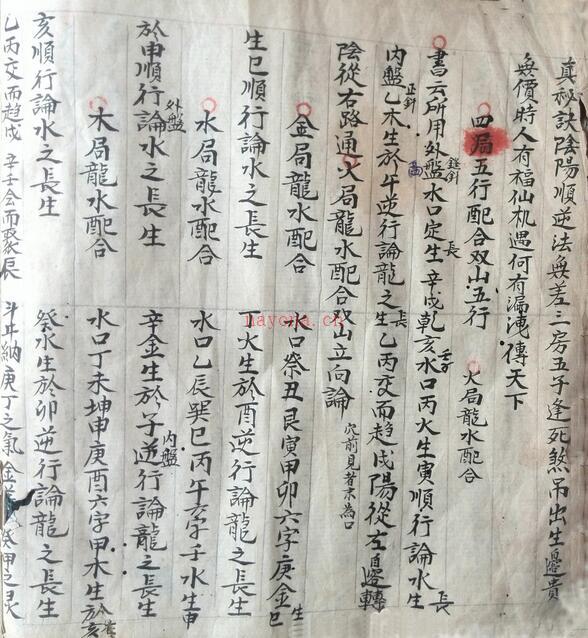 真秘訣陰陽順逆法無差三房五子逢死煞吊出生邊貴
無價時人有福仙机遇何有漏洩傳天下
四局五行配合双山五行 火局龍水配合
書云所用外盤縫針水口定生長辛戌乾亥壬子水口丙火生寅順行論水生長
內盤正針乙木生於午逆行論龍之生長乙丙交而趨戌陽從左邊轉
陰從右路通火局龍水配合双山立向論 穴前見者為口
金局龍水配合 水口癸丑艮寅甲卯六字庚金生巳
生巳順行論水之長生 丁火生於酉逆行論龍之長生
水局龍水配合 水口乙辰巽巳丙午六字壬水生申
外盤
於申順行論水之長生 辛金生於子逆行論龍之長生
內盤
木局龍水配合 水口丁未坤申庚酉六字甲木生於亥
亥順行論水之長生 癸水生於卯逆行論龍之長生
乙丙交而趨戌 辛壬会而聚辰 斗牛納庚丁之氣 金羊癸甲之灵
nayona.cn